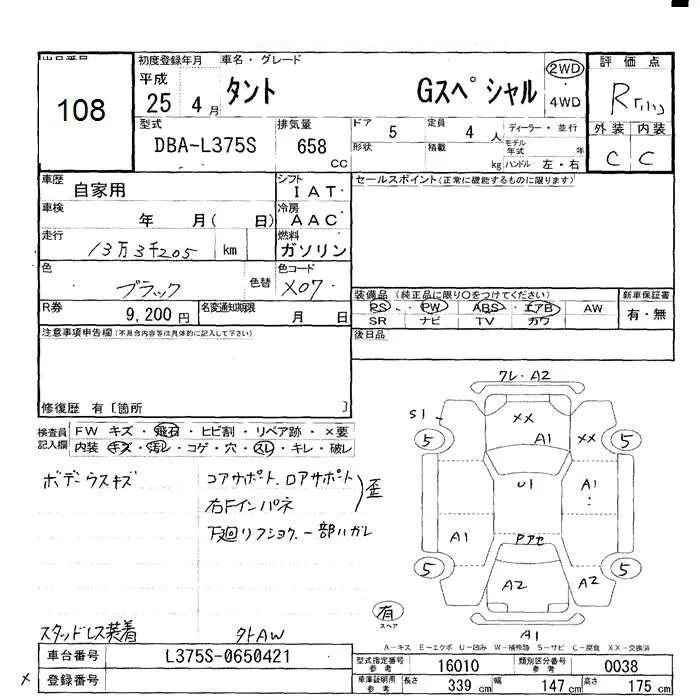 出品番号
108
初度登録年月
平成 25 4月
車名・グレード
タント Gスペシャル
2WD
4WD
評価点
R
外装 内装
C C
型式
DBA-L375S
排気量
658 cc
ドア 5
定員 4 人
ディーラー・並行
形状
積載 kg
モデル年式 年
ハンドル 左・右
車歴
自家用
シフト
IAT
セールスポイント(正常に機能するものに限ります)
車検
年 月( 日)
冷房
AAC
走行
13万3千205 km
燃料
ガソリン
色
ブラック
色替
色コード
X07
装備品 (純正品に限り○をつけてください)
PS・ PW ABS・ エアB AW
SR ナビ TV カワ
新車保証書
有・無
R券
9,200円
名変通知期限
月 日
後日品
注意事項申告欄(不具合内容等は具体的に記入して下さい)
修復歴 有〔箇所 〕
検査員記入欄
FW キズ・飛石・ヒビ割・リペア跡・×要
内装 キズ・汚レ・コゲ・穴・スレ・キレ・破レ
ボデーウスキズ
コアサポート、ロアサポート
右Fインパネ
歪
下廻リフショク、一部ハガレ
スタッドレス装着
外AW
ワレ・A2
S1
XX
A1
XX
5
5
U1
A1
A1
Pアセ
5
5
A2
A2
有
スペア
A1
A-キズ E-エクボ U-凹み W-補修跡 S-サビ C-腐食 XX-交換済
車台番号
L375S-0650421
登録番号
型式指定番号 参考
16010
類別区分番号 参考
0038
車庫証明用 参考
長さ 339 cm
幅 147 cm
高さ 175 cm
×